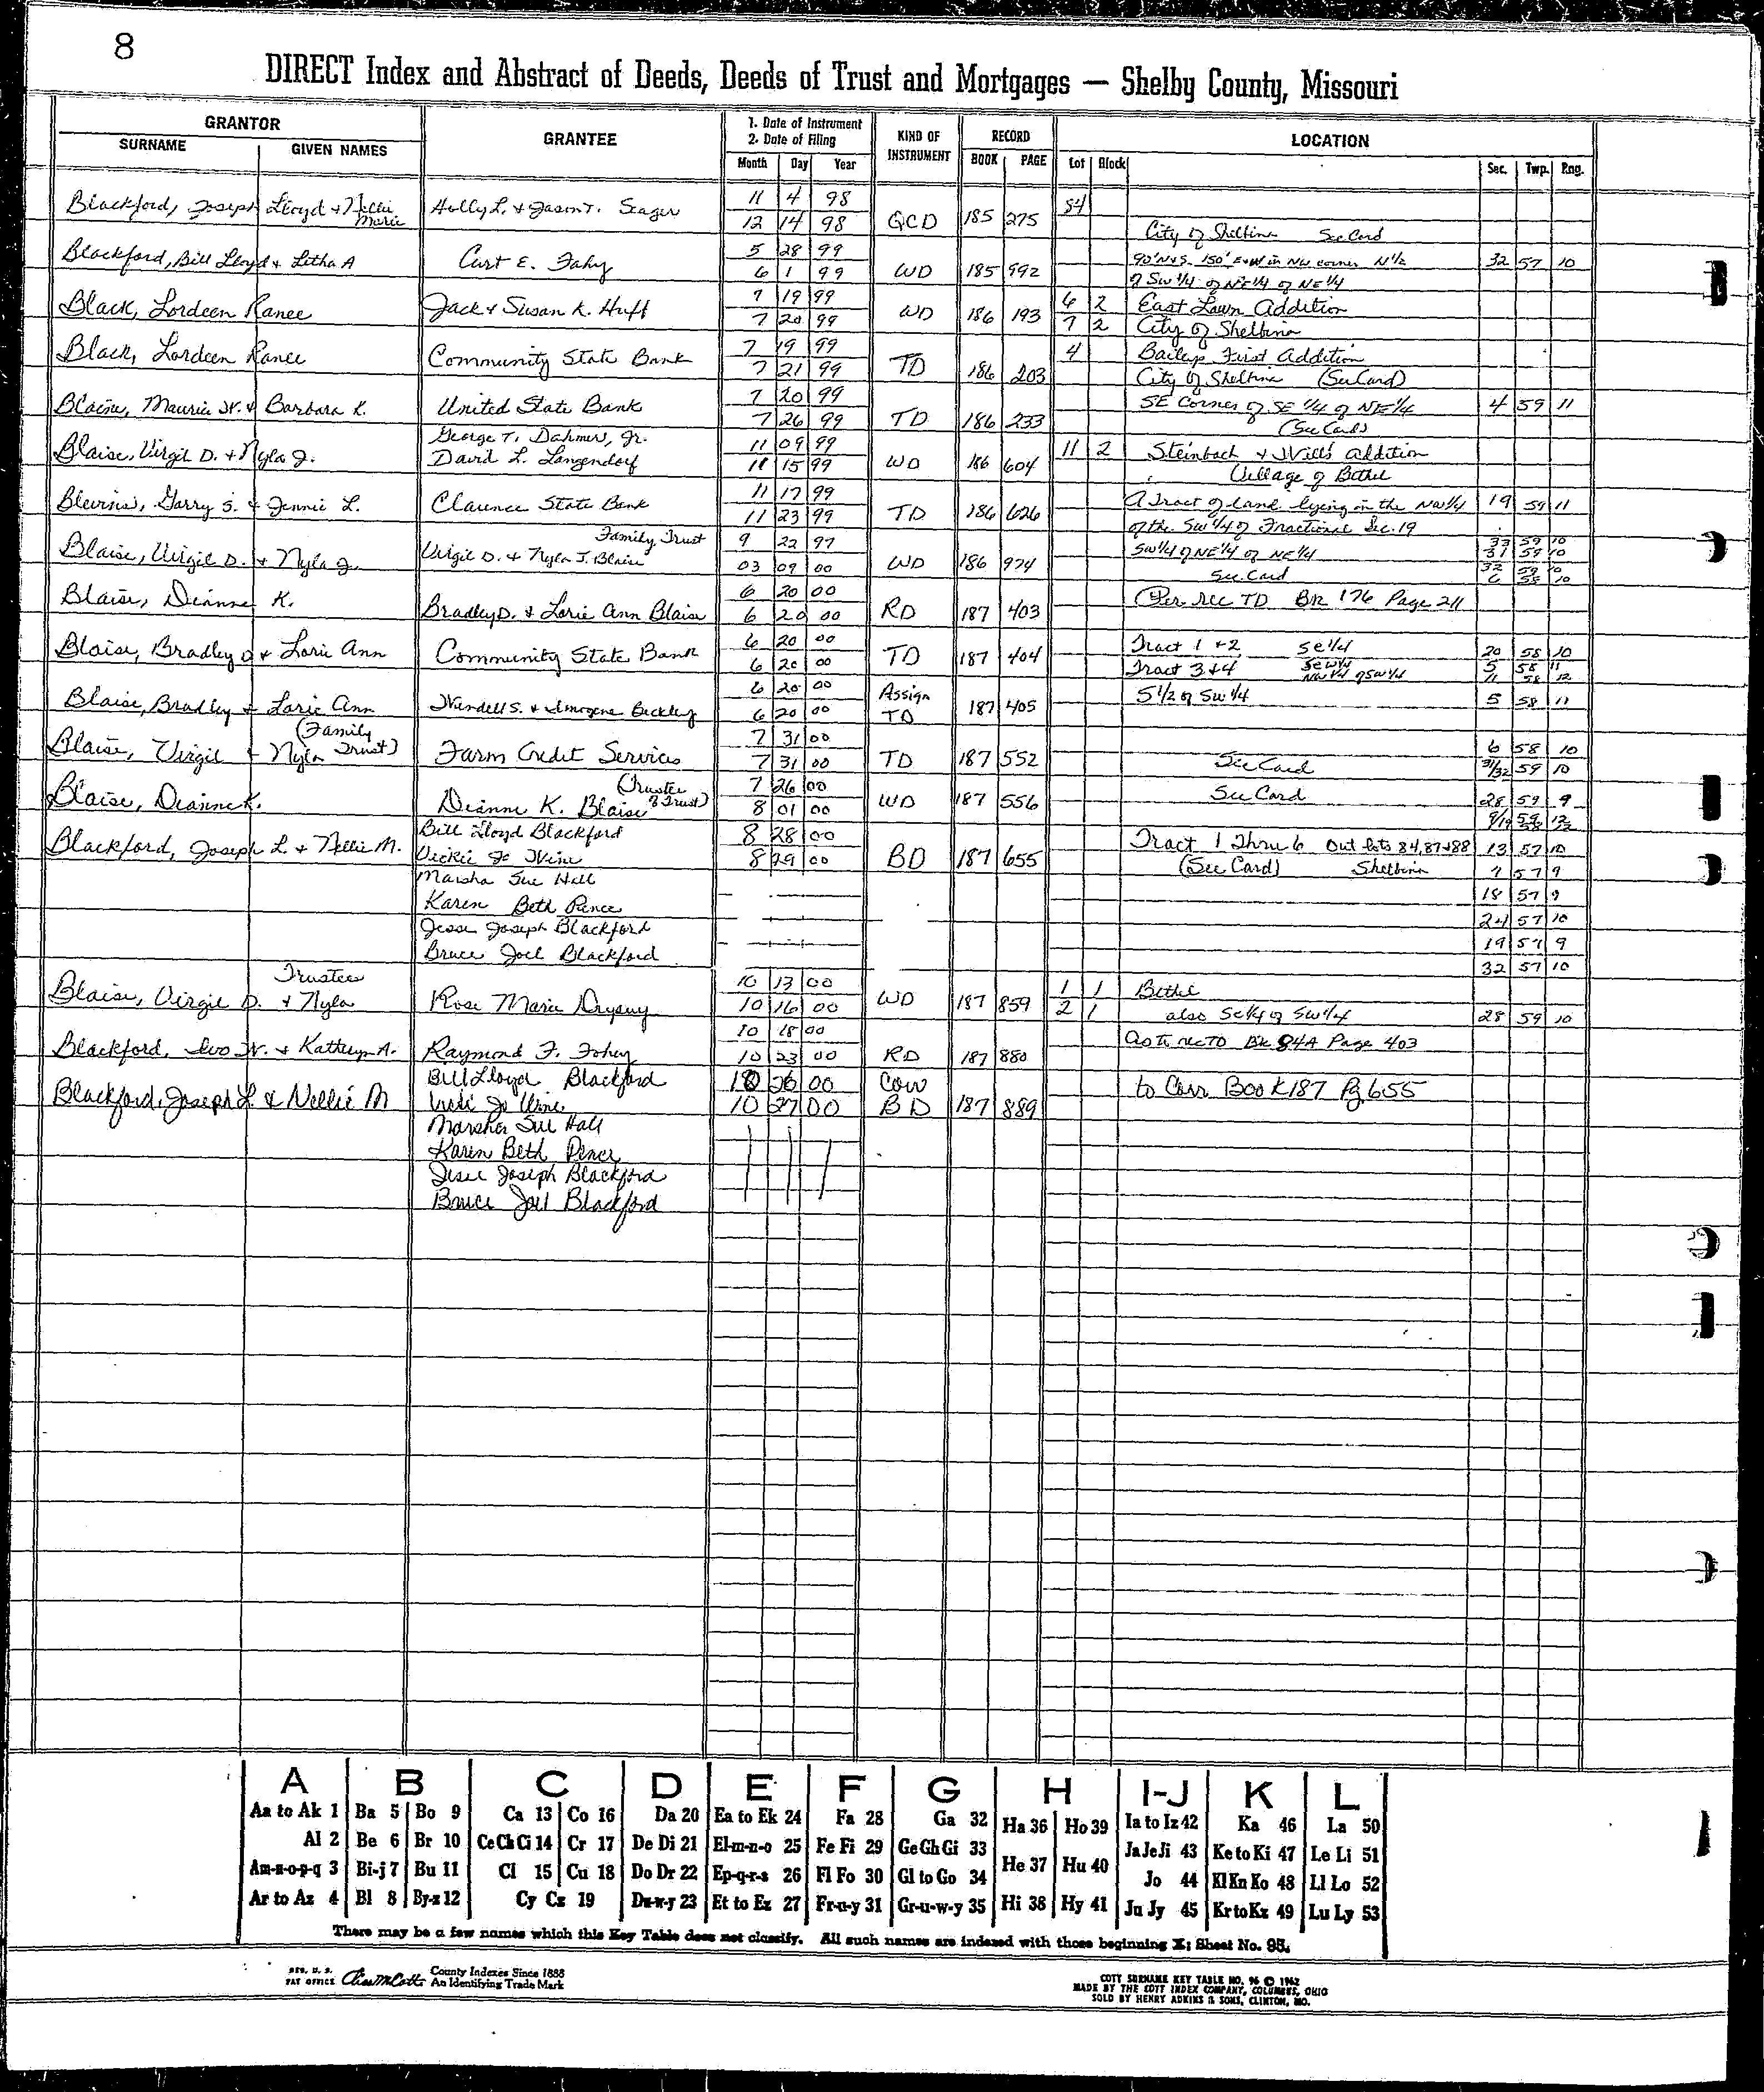 8
DIRECT Index and Abstract of Deeds, Deeds of Trust and Mortgages — Shelby County, Missouri
GRANTOR
SURNAME GIVEN NAMES
GRANTEE
1. Date of Instrument
2. Date of Filing
Month Day Year
KIND OF INSTRUMENT
RECORD
BOOK PAGE
LOCATION
Lot Block Sec. Twp. Rng.
Blackford, Joseph Lloyd & Nellie Marie Holly L. & Jason T. Seager 11 4 98 84
12 14 98 QCD 185 275 City of Shelbina See Card
Blackford, Bill Lloyd & Letha A Curt E. Fahy 5 28 99 90' N&S 150' E&W in NW corner N 1/2 32 57 10
6 1 99 WD 185 992 of SW 1/4 of NE 1/4 of NE 1/4
Black, Lordeen Ranee Jack & Susan K. Huff 7 19 99 6 2 East Lawn Addition
7 20 99 WD 186 193 7 2 City of Shelbina
Black, Lordeen Ranee Community State Bank 7 19 99 4 Baileys First Addition
7 21 99 TD 186 203 City of Shelbina (See Card)
Blaise, Maurice W. & Barbara K. United State Bank 7 20 99 SE Corner of SE 1/4 of NE 1/4 4 59 11
7 26 99 TD 186 233 (See Card)
Blaise, Virgil D. & Nyla J. George T. Dahmer, Jr. 11 09 99 11 2 Steinbach & Will's Addition
David L. Langendorf 11 15 99 WD 186 604 Village of Bethel
Blevins, Garry S. & Jennie L. Clarence State Bank 11 17 99 A Tract of land lying in the NW 1/4 19 59 11
11 23 99 TD 186 626 of the SW 1/4 of Fractional Sec. 19
Blaise, Virgil D. & Nyla J. Virgil D. & Nyla J. Blaise Family Trust 9 22 97 SW 1/4 of NE 1/4 of NE 1/4 33 59 10
31 59 10
03 09 00 WD 186 974 See Card 32 59 10
6 58 10
Blaise, Dianne K. Bradley D. & Lorie Ann Blaise 6 20 00 (Per rec TD BK 176 Page 211
6 20 00 RD 187 403
Blaise, Bradley D & Lorie Ann Community State Bank 6 20 00 Tract 1 + 2 SE 1/4 20 58 10
6 20 00 TD 187 404 Tract 3 + 4 NW 1/4 of SW 1/4 5 58 11
11 58 12
Blaise, Bradley & Lorie Ann Wendell S. & Imogene Buckley 6 20 00 Assign S 1/2 of SW 1/4 5 58 11
6 20 00 TD 187 405
Blaise, Virgil & Nyla (Family Trust) Farm Credit Services 7 31 00 6 58 10
7 31 00 TD 187 552 See Card 31/32 59 10
Blaise, Dianne K. Dianne K. Blaise (Trustee of Trust) 7 26 00 See Card 28 59 9
8 01 00 WD 187 556
Blackford, Joseph L. & Nellie M. Bill Lloyd Blackford 8 28 00 Tract 1 Thru 6 Out lots 84, 87 & 88 13 57 10
Vickie Jo Wine 8 29 00 BD 187 655 (See Card) Shelbina 7 57 9
Marsha Sue Hall 18 57 9
Karen Beth Pence 24 57 10
Jesse Joseph Blackford 19 57 9
Bruce Joel Blackford 32 57 10
Blaise, Virgil D. & Nyla Trustee Rose Marie Drysny 10 13 00 1 1 Bethel
10 16 00 WD 187 859 2 1 also SE 1/4 of SW 1/4 28 59 10
Blackford, Ivo W. & Kathryn A. Raymond F. Fohey 10 18 00 as to rec TD Bk 84A Page 403
10 23 00 RD 187 880
Blackford, Joseph L. & Nellie M Bill Lloyd Blackford 10 26 00 Corr to Corr Book 187 Pg 655
Vicki Jo Wine 10 27 00 BD 187 889
Marsha Sue Hall
Karen Beth Pence
Jesse Joseph Blackford
Bruce Joel Blackford
A B C D E F G H I-J K L
Aa to Ak 1 Ba 5 Bo 9 Ca 13 Co 16 Da 20 Ea to Ek 24 Fa 28 Ga 32 Ha 36 Ho 39 Ia to Iz 42 Ka 46 La 50
Al 2 Be 6 Br 10 Ce Ch Ci 14 Cr 17 De Di 21 El-m-n-o 25 Fe Fi 29 Ge Gh Gi 33 He 37 Hu 40 Ja Je Ji 43 Ke to Ki 47 Le Li 51
Am-n-o-p-q 3 Bi-j 7 Bu 11 Cl 15 Cu 18 Do Dr 22 Ep-q-r-s 26 Fl Fo 30 Gl to Go 34 Jo 44 Kl Kn Ko 48 Ll Lo 52
Ar to Az 4 Bl 8 By-z 12 Cy Cz 19 Du-w-y 23 Et to Ez 27 Fr-u-y 31 Gr-u-w-y 35 Hi 38 Hy 41 Ju Jy 45 Kr to Kz 49 Lu Ly 53
There may be a few names which this Key Table does not classify. All such names are indexed with those beginning X; Sheet No. 95.
REG. U. S. PAT OFFICE County Indexes Since 1888
An Identifying Trade Mark
COTT SURNAME KEY TABLE NO. 96 © 1962
MADE BY THE COTT INDEX COMPANY, COLUMBUS, OHIO
SOLD BY HENRY ADKINS & SONS, CLINTON, MO.